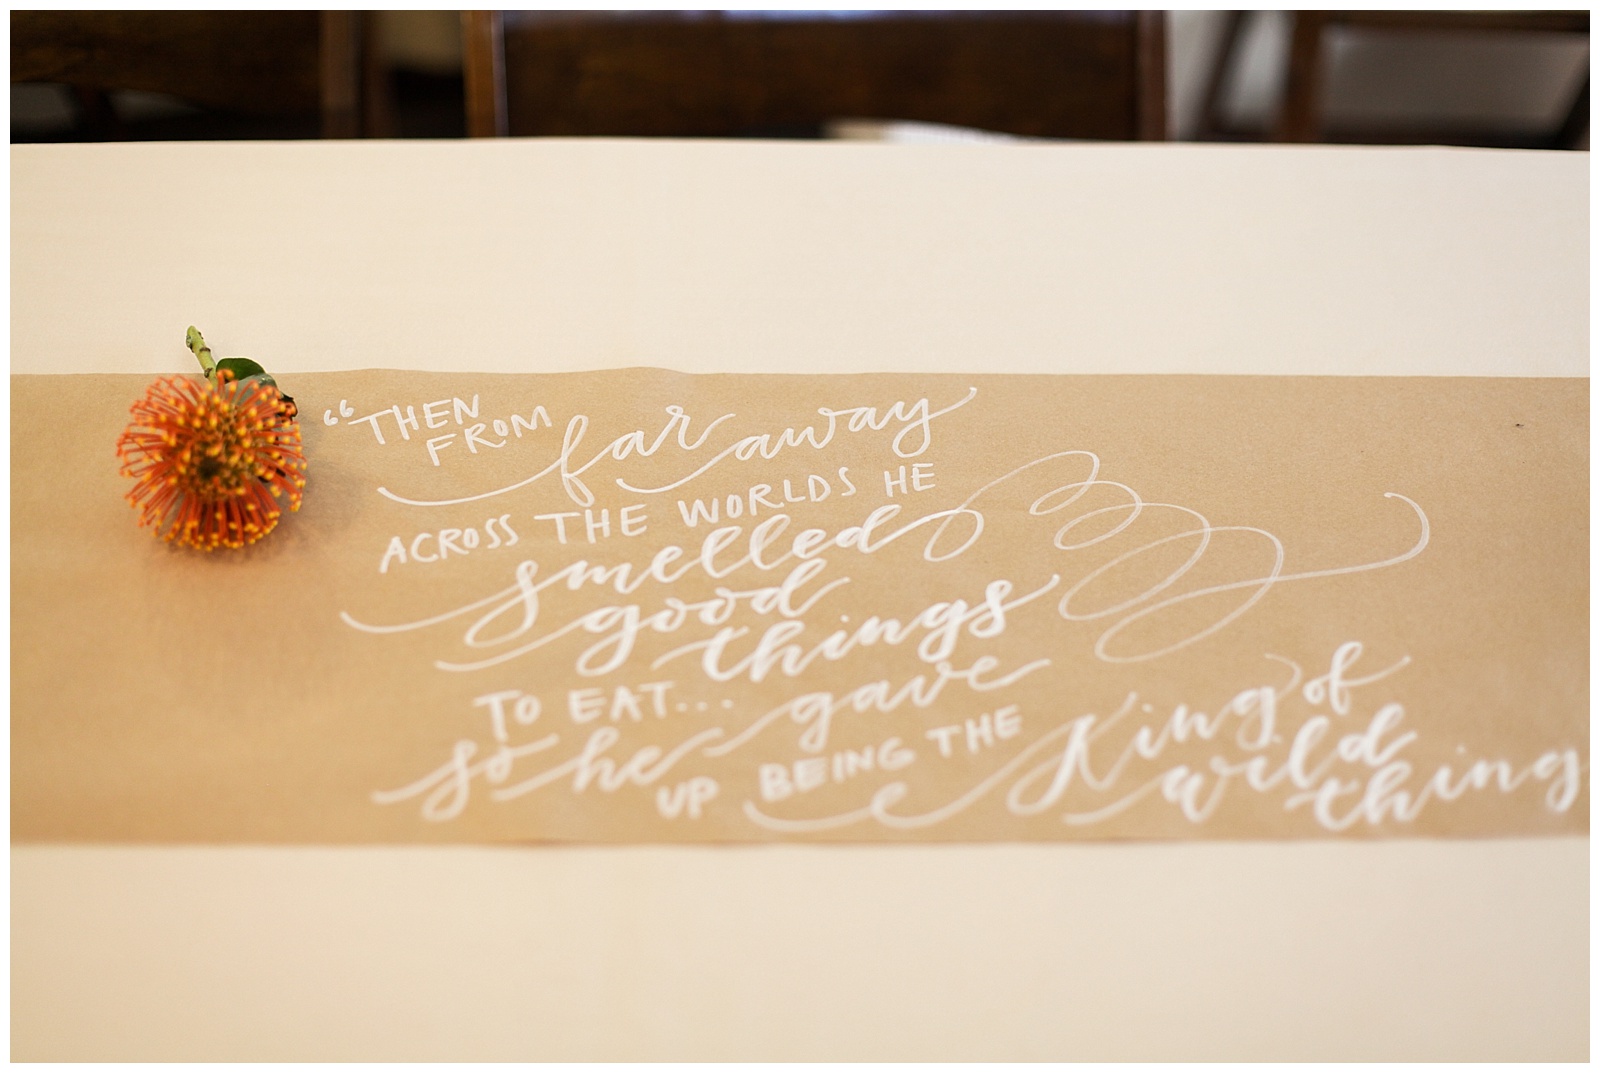 “THEN
FROM far away
ACROSS THE WORLDS HE
smelled
good things
TO EAT...
so he gave
UP BEING THE King of
wild thing